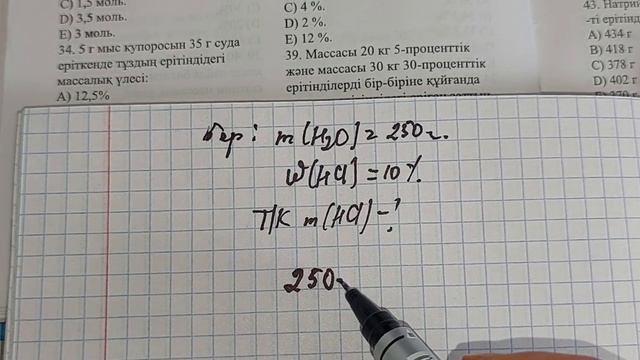 C) 1,5 моль.
D) 3,5 моль.
E) 3 моль.
34. 5 г мыс купоросын 35 г суда
еріткенде тұздың ерітіндідегі
массалық үлесі:
A) 12,5%
C) 4 %.
D) 2 %.
E) 12 %.
39. Массасы 20 кг 5-проценттік
және массасы 30 кг 30-проценттік
ерітінділерді бір-біріне құйғанда
43. Натрий
-ті ерітінд
A) 434 г
B) 418 г
C) 378 г
D) 402 г
Бер: m(H₂O) = 250 г.
W(HCl) = 10%.
Т/К m(HCl) - ?
250